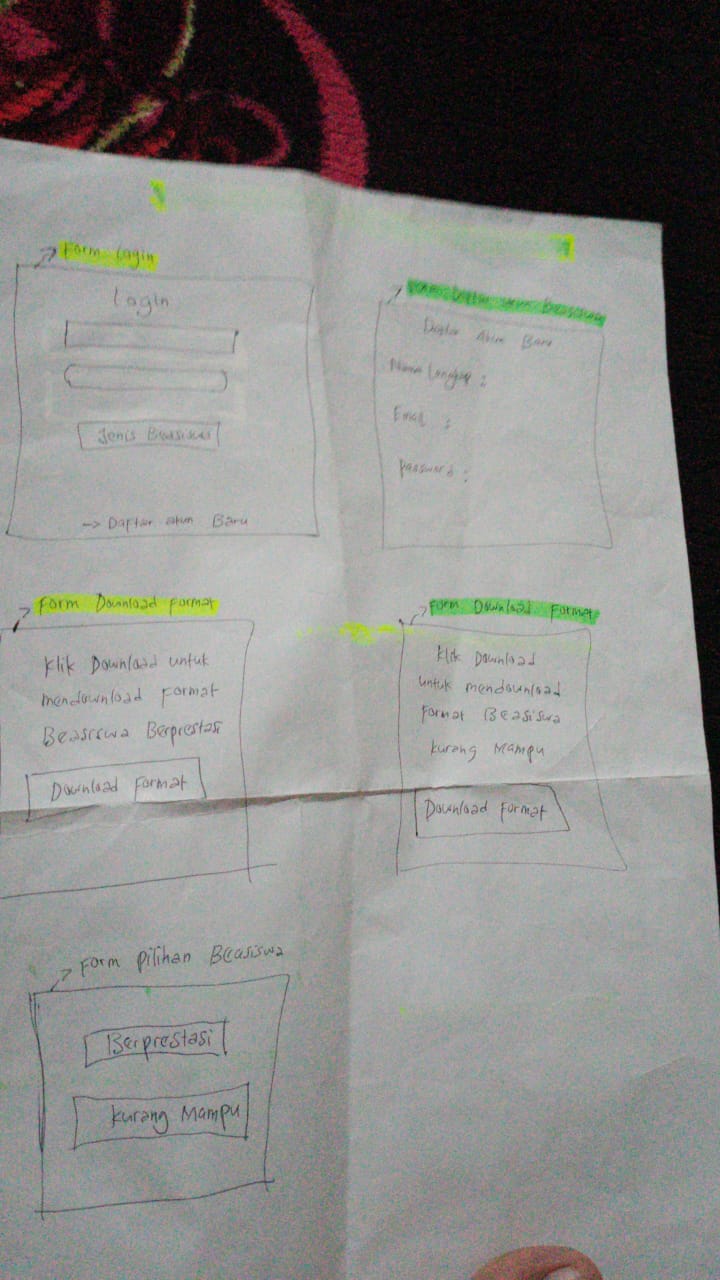 Form Login
Login
Jenis Beasiswa
-> Daftar akun Baru
Form Daftar akun Beasiswa
Daftar Akun Baru
Nama Lengkap :
Email :
Password :
Form Download Format
Klik Download untuk
mendownload Format
Beasiswa Berprestasi
Download Format
Form Download Format
Klik Download
untuk mendownload
Format Beasiswa
kurang Mampu
Download Format
Form pilihan Beasiswa
Berprestasi
kurang Mampu